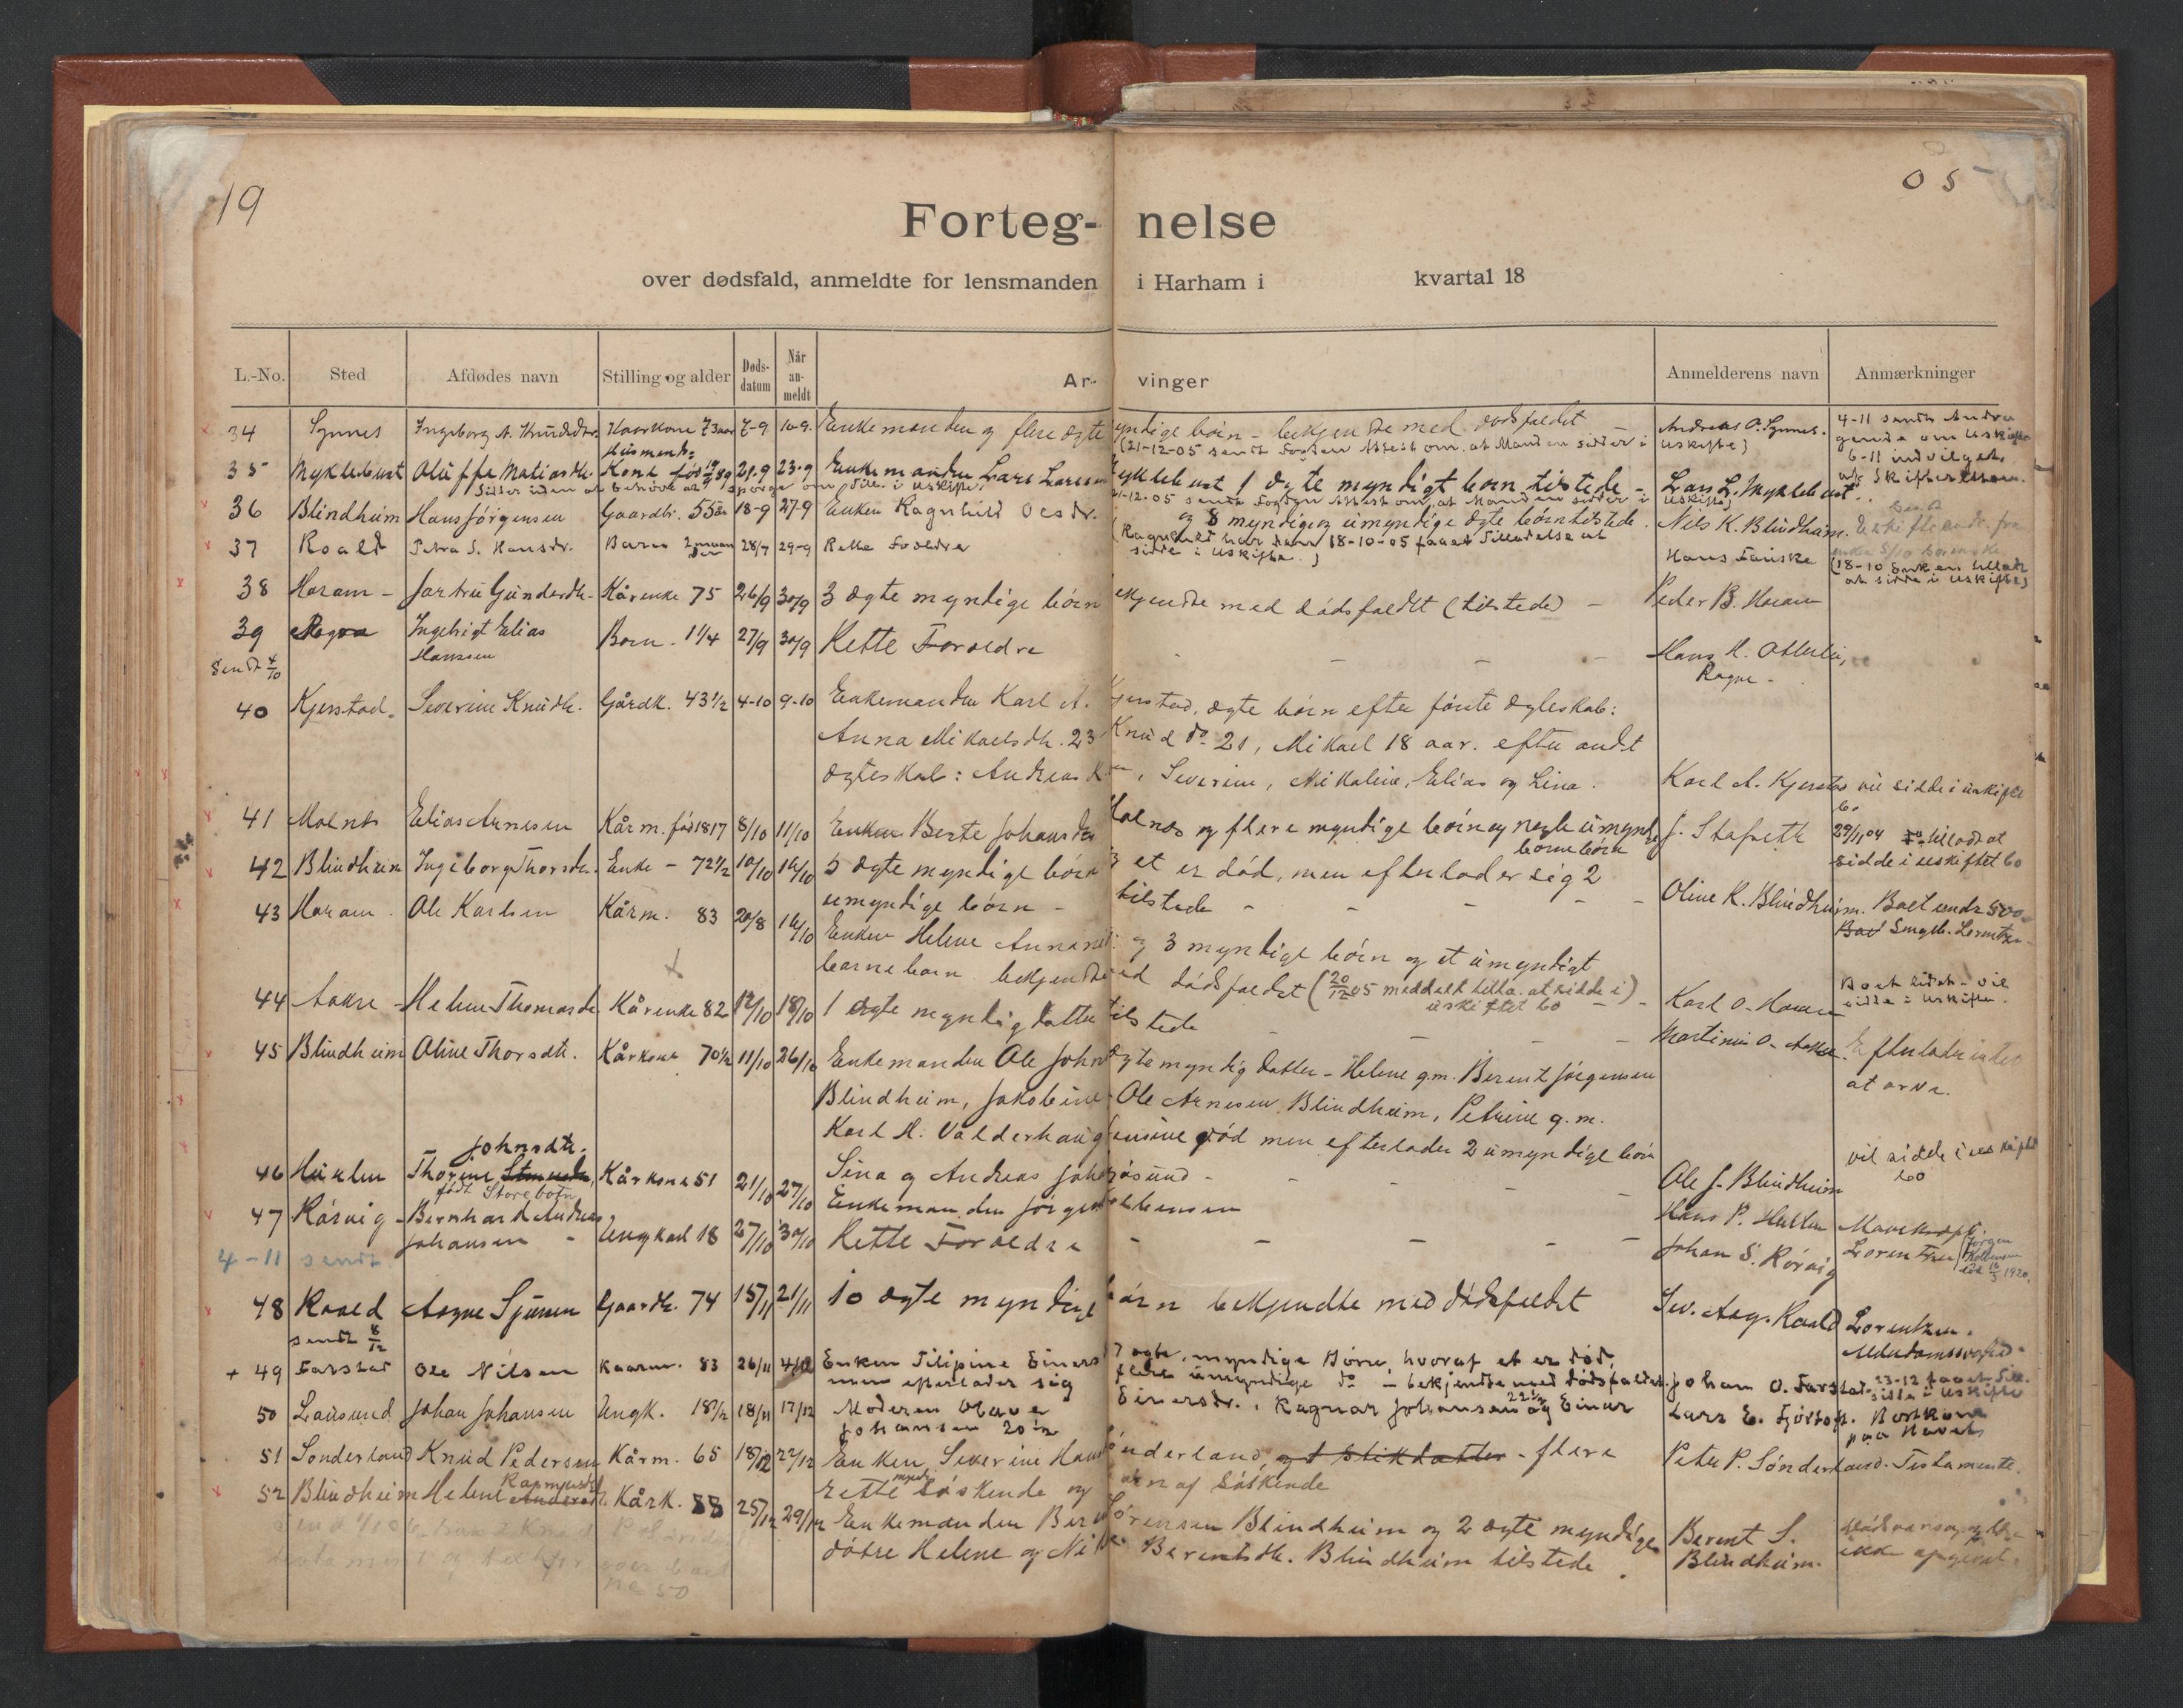 19
05
Forteg- nelse
over dødsfald, anmeldte for lensmanden i Harham i kvartal 18
L.-No. Sted Afdødes navn Stilling og alder Døds-datum Når an-meldt Ar- vinger Anmelderens navn Anmærkninger
34 Synnes Ingeborg A. Knudsdtr. Kaarkone 73 aar 7-9 10-9. Enkemanden og flere ægte myndige børn - bekjendte med dødsfaldet Andreas O. Synnes. 4-11 sendt
(21-12-05 sendt Fogden Attest om, at Manden sidder i Uskifte)
35 Myklebust Oluffa Matiasdtr. Husmands Kone 21-9 23-9 Enkemanden Lars Larssen Myklebust 1 ægte myndigt børn tilstede - Lars L. Myklebust. 6-11 indvilget
21-12-05 sendt Fogden Attest om, at Manden sidder i Uskifte
36 Blindheim Hans Jørgensen Gaardbr. 55 år 18-9 27-9 Enken Ragnhild Olsdr. og 8 myndige og umyndige ægte børn tilstede. Nils K. Blindheim.
(Ragnhild har den 18-10-05 faaet Tilladelse at sidde i Uskifte.)
37 Roald Petra S. Hansdr. Barn 2 28/7 29-9 Rette Forældre Hans Fauske (18-10 Enken tilladt at sidde i Uskifte)
38 Haram - Jartru Gundersdtr. Kårenke 75 26/9 30/9 3 ægte myndige børn bekjendte med dødsfaldet (tilstede) - Peder B. Haram
39 Rogne Ingebrigt Elias Hanssen Barn. 1 1/4 27/9 30/9 Rette Forældre - - - - Hans H. Otterlei, Rogne -
Sendt 4/10
40 Kjerstad. Severine Knudtr. Gårdk. 43 1/2 4-10 9-10 Enkemanden Karl A. Kjerstad, ægte børn efter første ægteskab:
Anna Mikaelsdtr. 23 Knud do 21, Mikael 18 aar. efter andet
ægteskab: Andreas K , Severine, Nikoline, Elias og Lina. Karl A. Kjerstad vil sidde i uskiftet bo
41 Molnes Elias Arnesen Kårm. født 1817 8/10 11/10 Enken Berte Johansdtr. Molnes og flere myndige børn og nogle umyndige børnebørn J. Stafseth 29/11 04 tilladt at sidde i uskiftet bo
42 Blindheim Ingeborg Thorsdtr. Enke - 72 1/2 10/10 14/10 5 ægte myndige børn et er død, men efterlader sig 2
umyndige børn - tilstede - - - - Oline K. Blindheim. Boet under 500
43 Haram. Ole Karlsen Kårm. 83 20/8 16/10 Enken Helene og 3 myndige børn og et umyndigt
barnebarn bekjendt med dødsfaldet (20/12 05 meddelt tilla. at sidde i uskiftet bo) - Karl O. Haram Boet lidet - vil sidde i Uskifte.
44 Aakre - Helene Thomasdtr. Kårenke 82 12/10 18/10 1 ægte myndig datter tilstede - - - Martinus O. Aakre. Efterlader intet at arve.
45 Blindheim Oline Thorsdtr. Kårkone 70 1/2 11/10 26/10 Enkemanden Ole ægte myndig datter - Helene g.m. Berent Jørgensen
Blindheim, Jakobine Ole Arnesen Blindheim, Petrine g.m.
Karl H. Valderhaug død men efterlader 2 umyndige børn
Sina og Andreas - - - - Ole J. Blindheim vil sidde i uskiftet bo
46 Hellen Thorine Johnsdtr. født Storebotn Kårkone 51 21/10 27/10 Enkemanden Jørgen Kolbensen Hans P. Hellen
47 Rørvig - Bernhard Andreas Johansen - Ungkarl 18 27/10 30/10 Rette Forældre - - - - Johan S. Rørvig Lorentzen (Jørgen Kolbensen død 16/5 1920.
4-11 sendt
48 Roald Aagne Sjursen Gaardbr. 74 15/11 21/11 10 ægte myndige børn bekjendte med dødsfaldet Sev. Aag. Roald Lorentzen.
sendt 8/12
+ 49 Farstad Ole Nilsen Kaarm. 83 26/11 4/12 Enken Filipine Einers 7 ægte, myndige Børn, hvoraf et er død,
men efterlader sig flere umyndige do - bekjendte med dødsfaldet. Johan O. Farstad 23-12 faaet Till. sidde i Uskifte
50 Lausund Johan Johansen Ungk. 18 1/2 18/11 17/12 Moderen Olave Einersdr., Ragnar Johansen 22 1/2 og Einar
Johansen 20 år Lars E. Fjørtoft. Bortkom paa Havet
51 Sønderland Knud Pedersen Kårm. 65 18/12 22/12 Enken Severine Sønderland, og 1 stikdatter - flere
rette søskende og børn af Søskende Peter P. Sønderland. Testamente.
52 Blindheim Helene Rasmusdtr. Kårk. 88 25/12 29/12 Enkemanden Berent Sørensen Blindheim og 2 ægte myndige
døtre Helene og Berentsdtr. Blindheim tilstede. Berent S. Blindheim.